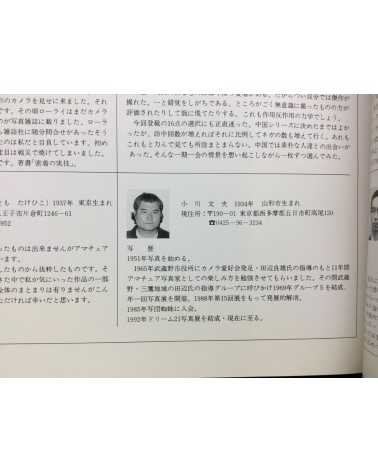 のカメラを見せに来ました。それ
です。その頃ローライはまだカメラ
が写真雑誌に載りました。ローラ
ら雑誌社に随分問合せがあったそう
とのは私だと自負しています。初め
度目は戦災で焼けてしまいました。
です。著書「密着の実技」。
撮れた。一と錯覚をしがちである。ところがごく無意識に撮ったものの方が
評価されたりして妙に慌てたりする。これも作用反作用の力学でしょう。
今回登載の16点の選択にも正直迷った。中国シリーズに決めたまではよか
ったが、訪中回数が増えればそれに比例してネガの数も増えて行く。あれ
これもと力んで見ても所詮まとまらない。中国では素朴な人達との出会いが
あった。そんな一期一会の情景を想い起こしながら一枚ずつ選んでみた。
とも たけひこ）1937年 東京生まれ
王子市片倉町1246-61
952
ったものは出来ませんがアマチュア
います。
したものから抜粋したものです。そ
きた中で私が気にいった作品の一部
全体のまとまりは有りませんがこん
ただければ幸いだと思います。
小川文夫 1934年 山形市生まれ
現住所：〒190-01 東京都西多摩郡五日市町高尾130
☎0425-96-3234
写歴
1951年写真を始める。
1965年武蔵野市役所にカメラ愛好会発足・田辺良雄氏の指導のもと10年間
アマチュア写真家としての楽しみ方を勉強させてもらいました。その間武蔵
野・三鷹地域の田辺氏の指導グループに呼びかけ1969年グループSを結成、
年一回写真展を開催。1988年第15回展をもって発展的解消。
1985年写団蜘蛛に入会。
1992年ドリーム21写真展を結成・現在に至る。